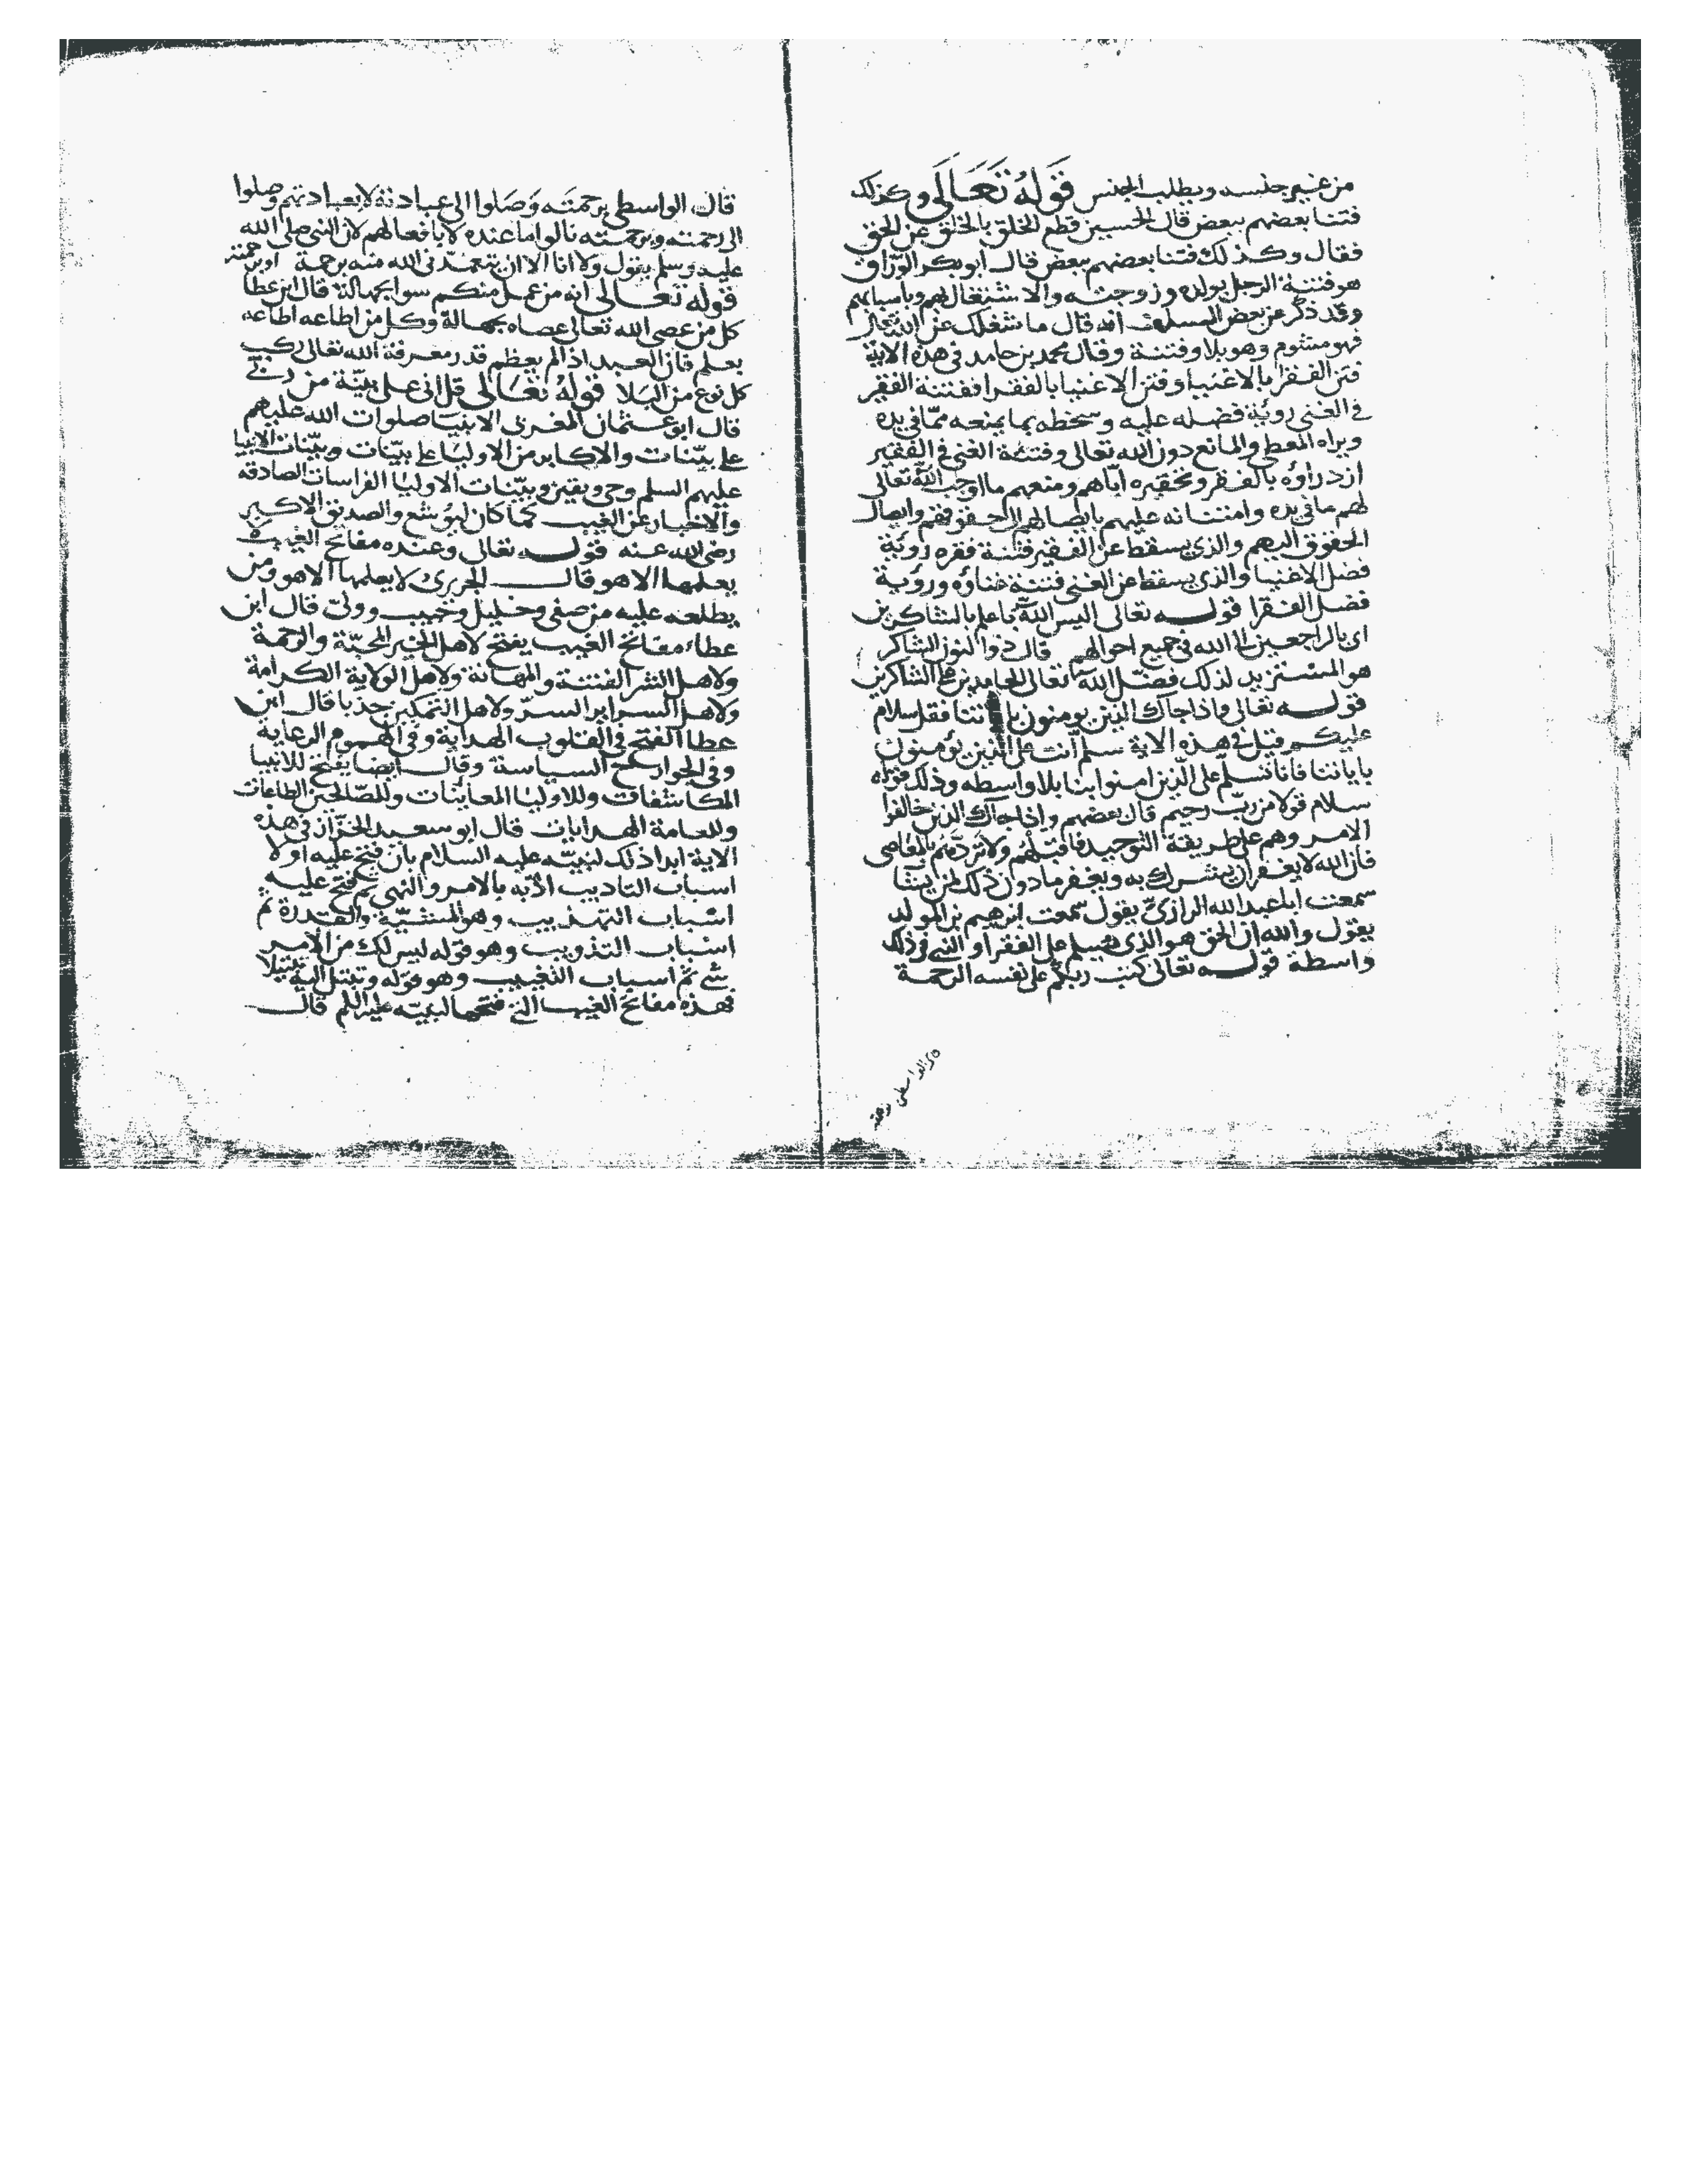 من غير جنسه ويطلب الجنس قَولهُ تَعَالَى وكذلك
فتنا بعضهم ببعض قال الحسين قطع الخلق بالخلق عن الحق
فقال وكذلك فتنا بعضهم ببعض قال ابو بكر الورّاق
هو فتنة الرجل بولده وزوجته والاشتغال بهم وباسبابهم
وقد ذكر عن بعض السلف انه قال ما شغلك عن الله تعالى
فهو مشئوم وهو بلا وفتنة وقال محمد بن حامد فى هذه الاية
فتن الفقرا بالاغنيا وفتن الاغنيا بالفقرا ففتنة الفقير
فى الغنى روية فضله عليه وسخطه بما يمنعه ممّا فى يده
ويراه المعطى والمانع دون الله تعالى وفتنة الغنى فى الفقير
ازدراؤه بالفقر وتحقيره اياهم ومنعهم ما اوجب الله تعالى
لهم مما فى يده وامتنانه عليهم بايصالهم الى حقوقهم وايصال
الحقوق اليهم والذى يسقط عن الفقير فتنة فقره روية
فضل الاغنيا والذى يسقط عن الغنى فتنة غناؤه وروية
فضل الفقرا قوله تعالى اليس الله باعلم بالشاكرين
اى بالراجعين الى الله فى جميع احوالهم قال ذوا النون الشاكر
هو المستزيد لذلك فضل الله تعالى الحامدين على الشاكرين
قوله تعالى واذا جاك الذين يومنون باياتنا فقل سلام
عليكم قيل فى هذه الاية سلم انت على الذين يؤمنون
باياتنا فانا نسلم على الّذين امنوا بنا بلا واسطه وذلك قوله
سلام قولا من ربّ رحيم قال بعضهم واذا جاك الذين خالفوا
الامر وهم على طريقة التوحيد فاقبلهم ولا تردّهم بالمعاصى
فان الله لا يغفر ان يشرك به ويغفر ما دون ذلك لمن يشا
سمعت ابا عبد الله الرازىّ يقول سمعت ابرهيم بن المولد
يقول والله ان الحق هو الذى يسلم على الفقرا و النبى فى ذلك
واسطة قوله تعالى كتب ربكم على نفسه الرحمة
قال الواسطى برحمته
قال الواسطى برحمته وَصَلوا الى عبادته لا بعبادتهم وصلوا
الى رحمته وبرحمته نالوا ما عنده لا بافعالهم لان النبى صلى الله
عليه وسلم يقول ولا انا الا ان يتغمّدنى الله منه برحمة
قوله تعالى انه من عمل منكم سوا بجهالة قال ابن عطا
كل من عصى الله تعالى عصاه بجهالة وكل من اطاعه اطاعه
بعلم فان العبد اذا لم يعظم قدر معرفة الله تعالى ركب
كل نوع من البلا قَولهُ تعَالى قل انى على بيّنة من ربى
قال ابو عثمان المغربى الانبيا صلوات الله عليهم
على بيّنات والاكابر من الاوليا على بيّنات وبيّنات الانبيا
عليهم السلم وحى ويقين وبيّنات الاوليا الفراسات الصادقه
والاخبار عن الغيب كما كان ليوشع والصديق الاكبر
رضى الله عنه قوله تعالى وعنده مفاتح الغيب لا
يعلمها الا هو قال الجريرى لا يعلمها الا هو ومن
يطلعه عليه من صفى وخليل وحبيب وولىّ قال ابن
عطاء مفاتح الغيب يفتح لاهل الخير المحبّة والرحمة
ولاهل الشر الفتنة والمهانة ولاهل الولاية الكرامة
ولاهل السراير السرّ ولاهل التمكين جذبا قال ابن
عطا الفتح فى القلوب الهداية وفى الهموم الرعاية
وفى الجوارح السياسة وقال ايضا يفتح للانبيا
المكاشفات وللاوليا المعاينات وللصّالحين الطاعات
وللعامة الهدايات قال ابو سعيد الخرّاز فى هذه
الاية ابدا ذلك لنبيّه عليه السلام بان فتح عليه اولا
اسباب التاديب ادّبه بالامر والنهى ثم فتح عليه
اسباب التهذيب وهو المشيّة والقدرة ثم
اسباب التذويب وهو قوله ليس لك من الامر
شى ثم اسباب التغييب وهو قوله وتبتل اليه تبتيلا
فهذه مفاتح الغيب التى فتحها لنبيّه عليه السلم قال